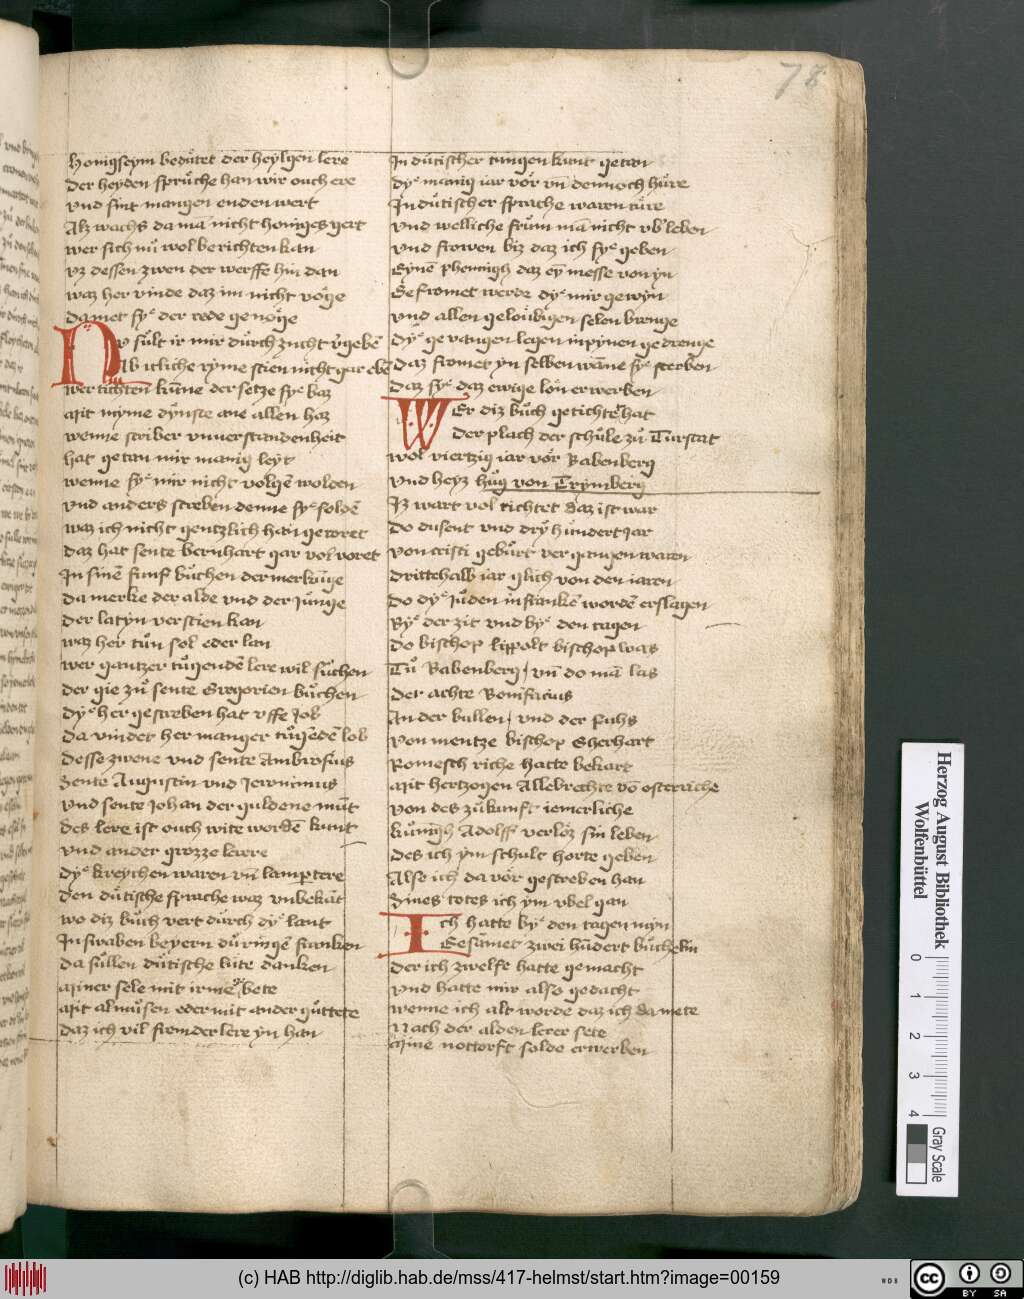 78
Honigseym bedu̇tet der heylgen lere
Der heyden spru̇che han wir ouch ere
Vnd sint mangen enden wert
Alz wachs da mā nicht honiges gert
Wer sich nu̇ wol berichten kan
Vz dessen zwen der werffe hin dan
Waz her vinde daz im nicht vo̊ge
Da met syͤ der rede genȯge
Nv su̇lt ir mir du̇rch zucht v'gebē
Ab itliche ryme stien nicht gar ebē
Wer tichten ku̇nne der setze syͤ baz
Mit myme dynste ane allen haz
Wenne scriber vnuerstandenheit
Hat getan mir manig leyt
Wenne syͤ mir nicht volgē wolden
Vnd anders screben denne syͤ soldē
Waz ich nicht gentzlich han geto̊ret
Daz hat sente bernhart gar vol voret
In sinē funf bu̇chen der merku̇ge
Da merke der alde vnd der Ju̇nge
Der latyn verstien kan
Waz her tu̇n sol eder lan
Wer gantzer tu̇gendē lere wil su̇chen
Der gie zu̇ sente Gregorien bu̇chen
Dyͤ her gescreben hat vffe Job
Da vindet her manger tu̇gēdē lob
Desse zwene vnd sente Ambrosius
Sente Augustin vnd Jeronimus
Vnd sente Johan der guldene mu̇t
Des lere ist ouch wite wordē kunt
Vnd ander grozze lerere
Dyͤ kreychen waren vn̄ lampertere
Den du̇tische sprache waz vnbekāt
Wo diz bu̇ch vert du̇rch dyͤ lant
In swaben beyern du̇ringē franken
Da su̇llen du̇tische lute danken
Miner sele mit irme bete
Mit almu̇sen eder mit ander gu̇ttete
Daz ich vil fromder lere yn han
In du̇tischer tzungen kunt getan
Dyͤ manig iar vȯr vn̄ dennoch hu̇re
In du̇tischer sprache waren tu̇re
Vnd welliche fru̇m mā nicht vb'leben
Vnd frowen biz daz ich syͤ geben
Eynē phennigh daz ey messe von yn
Gefromet werde dyͤ mir gewyn
Vnd allen gelou̇bigen selen brenge
Dyͤ gevangen legen in pynen gedrenge
Daz fromet yn selben wāne syͤ sterbēn
Daz syͤ daz ewige lon erwerben
Wer diz bu̇ch getichtet hat
Der plach der schu̇le zu̇ Turstat
Wol viertzig iar vȯr Babenberg
Vnd heyz hu̇g von Trymberg
Iz wart vol tichtet daz ist war
Do dusent vnd dry hu̇ndert iar
Von cristi gebu̇rt vergangen waren
Drittehalb iar glich von den iaren
Do dyͤ Ju̇den in frankē wordē erslagen
Byͤ der zit vnd byͤ den tagen
Do bischop lippolt bischop was
Tzu̇ Babenberg / vn̄ do mā las
Der achte Bonifacius
An der bullen / vnd der fuhs
Von mentze bischop Gherhart
Romesch riche hatte bekart
Mit hertzogen Allebrechte vō osteriche
Von des zu̇kunft iemerliche
Ku̇nigh Adolff verloz sin leben
Des ich ym schult horte geben
Also ich da vȯr gescreben han
Sines totes ich ym vbel gan
Ich hatte byͤ den tagen myn
Gesāmet zwei hu̇ndert bu̇chelin
Der ich zwelfe hatte gemacht
Vnd hatte mir also gedacht
Wenne ich alt worde daz ich da mete
Nach der alden lerer sete
Mine nottorft solde erwerben
Herzog August Bibliothek
Wolfenbüttel
0 1 2 3 4
Gray Scale
(c) HAB http://diglib.hab.de/mss/417-helmst/start.htm?image=00159
WDB
cc BY SA